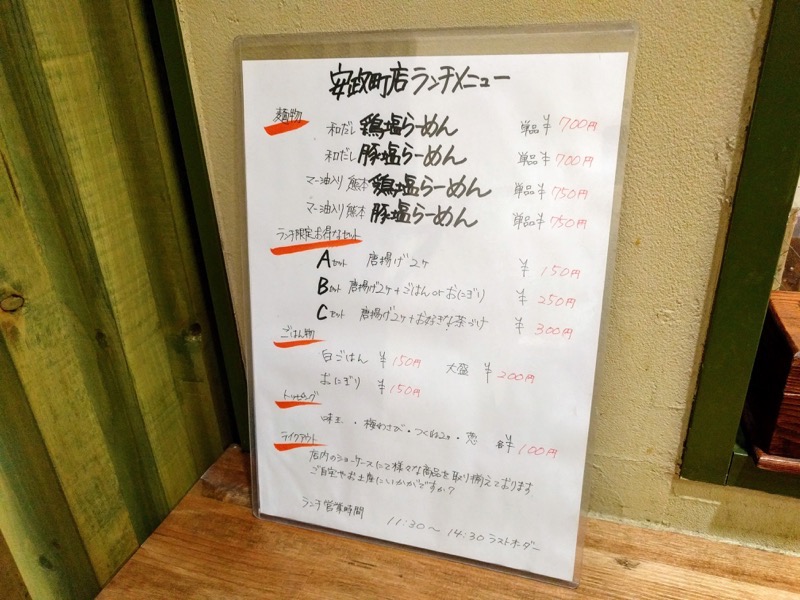 安政町店ランチメニュー
麺物
和だし 鶏塩らーめん 単品 ¥700円
和だし 豚塩らーめん 単品 ¥700円
マー油入り 熊本 鶏塩らーめん 単品 ¥750円
マー油入り 熊本 豚塩らーめん 単品 ¥750円
ランチ限定お得なセット
Aセット 唐揚げ2ヶ ¥150円
Bセット 唐揚げ2ヶ+ごはんorおにぎり ¥250円
Cセット 唐揚げ2ヶ+お好きな茶づけ ¥300円
ごはん物
白ごはん ¥150円 大盛 ¥200円
おにぎり ¥150円
トッピング
味玉・梅わさび・つくね2ヶ・葱 各¥100円
テイクアウト
店内のショーケースにて様々な商品を取り揃えております
ご自宅やお土産にいかがですか?
ランチ営業時間 11:30〜14:30ラストオーダー